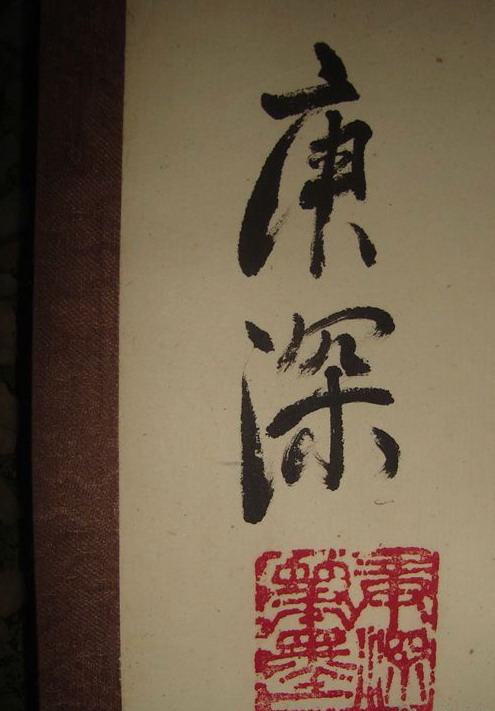 庚深
庚深
筆墨